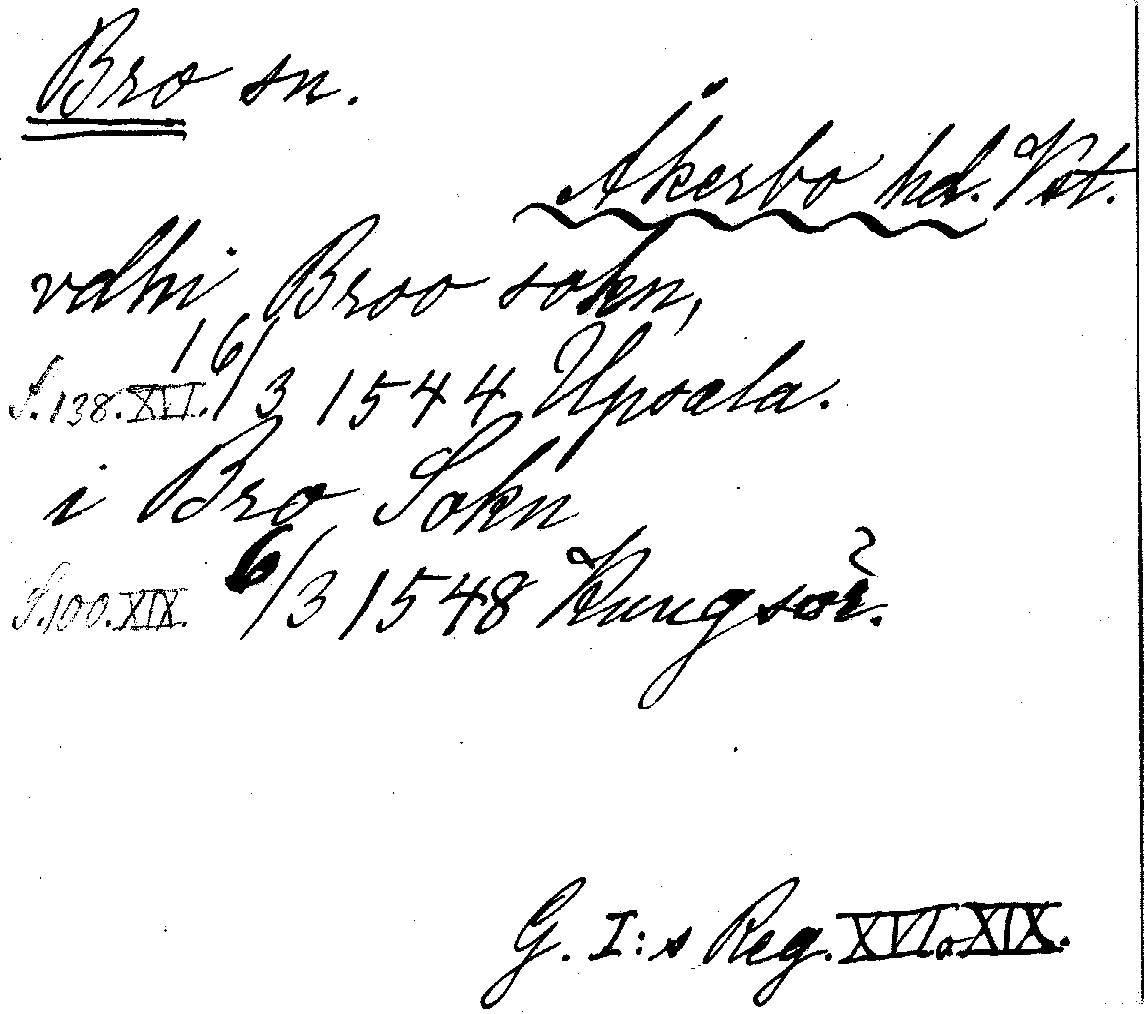 Bro sn.
Åkerbo hd. Vst.
vdhi Broo sokn,
S. 138. XVI. 16/3 1544 Upsala.
i Bro Sokn
S. 100. XIX. 6/3 1548 Kungsör.
G. I:s Reg. XVI. o. XIX.